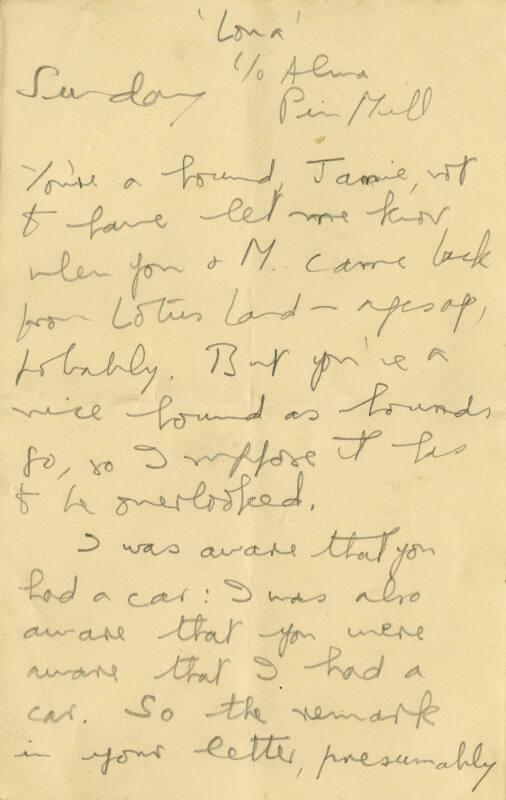 'Lona'
c/o Alma
Sunday
Pin Mill
You're a hound, Jamie, not
to have let me know
when you & M. came back
from Lotus Land – ages ago,
probably. But you're a
nice hound as hounds
go, so I suppose it has
to be overlooked.
I was aware that you
had a car: I was also
aware that you were
aware that I had a
car. So the remark
in your letter, presumably